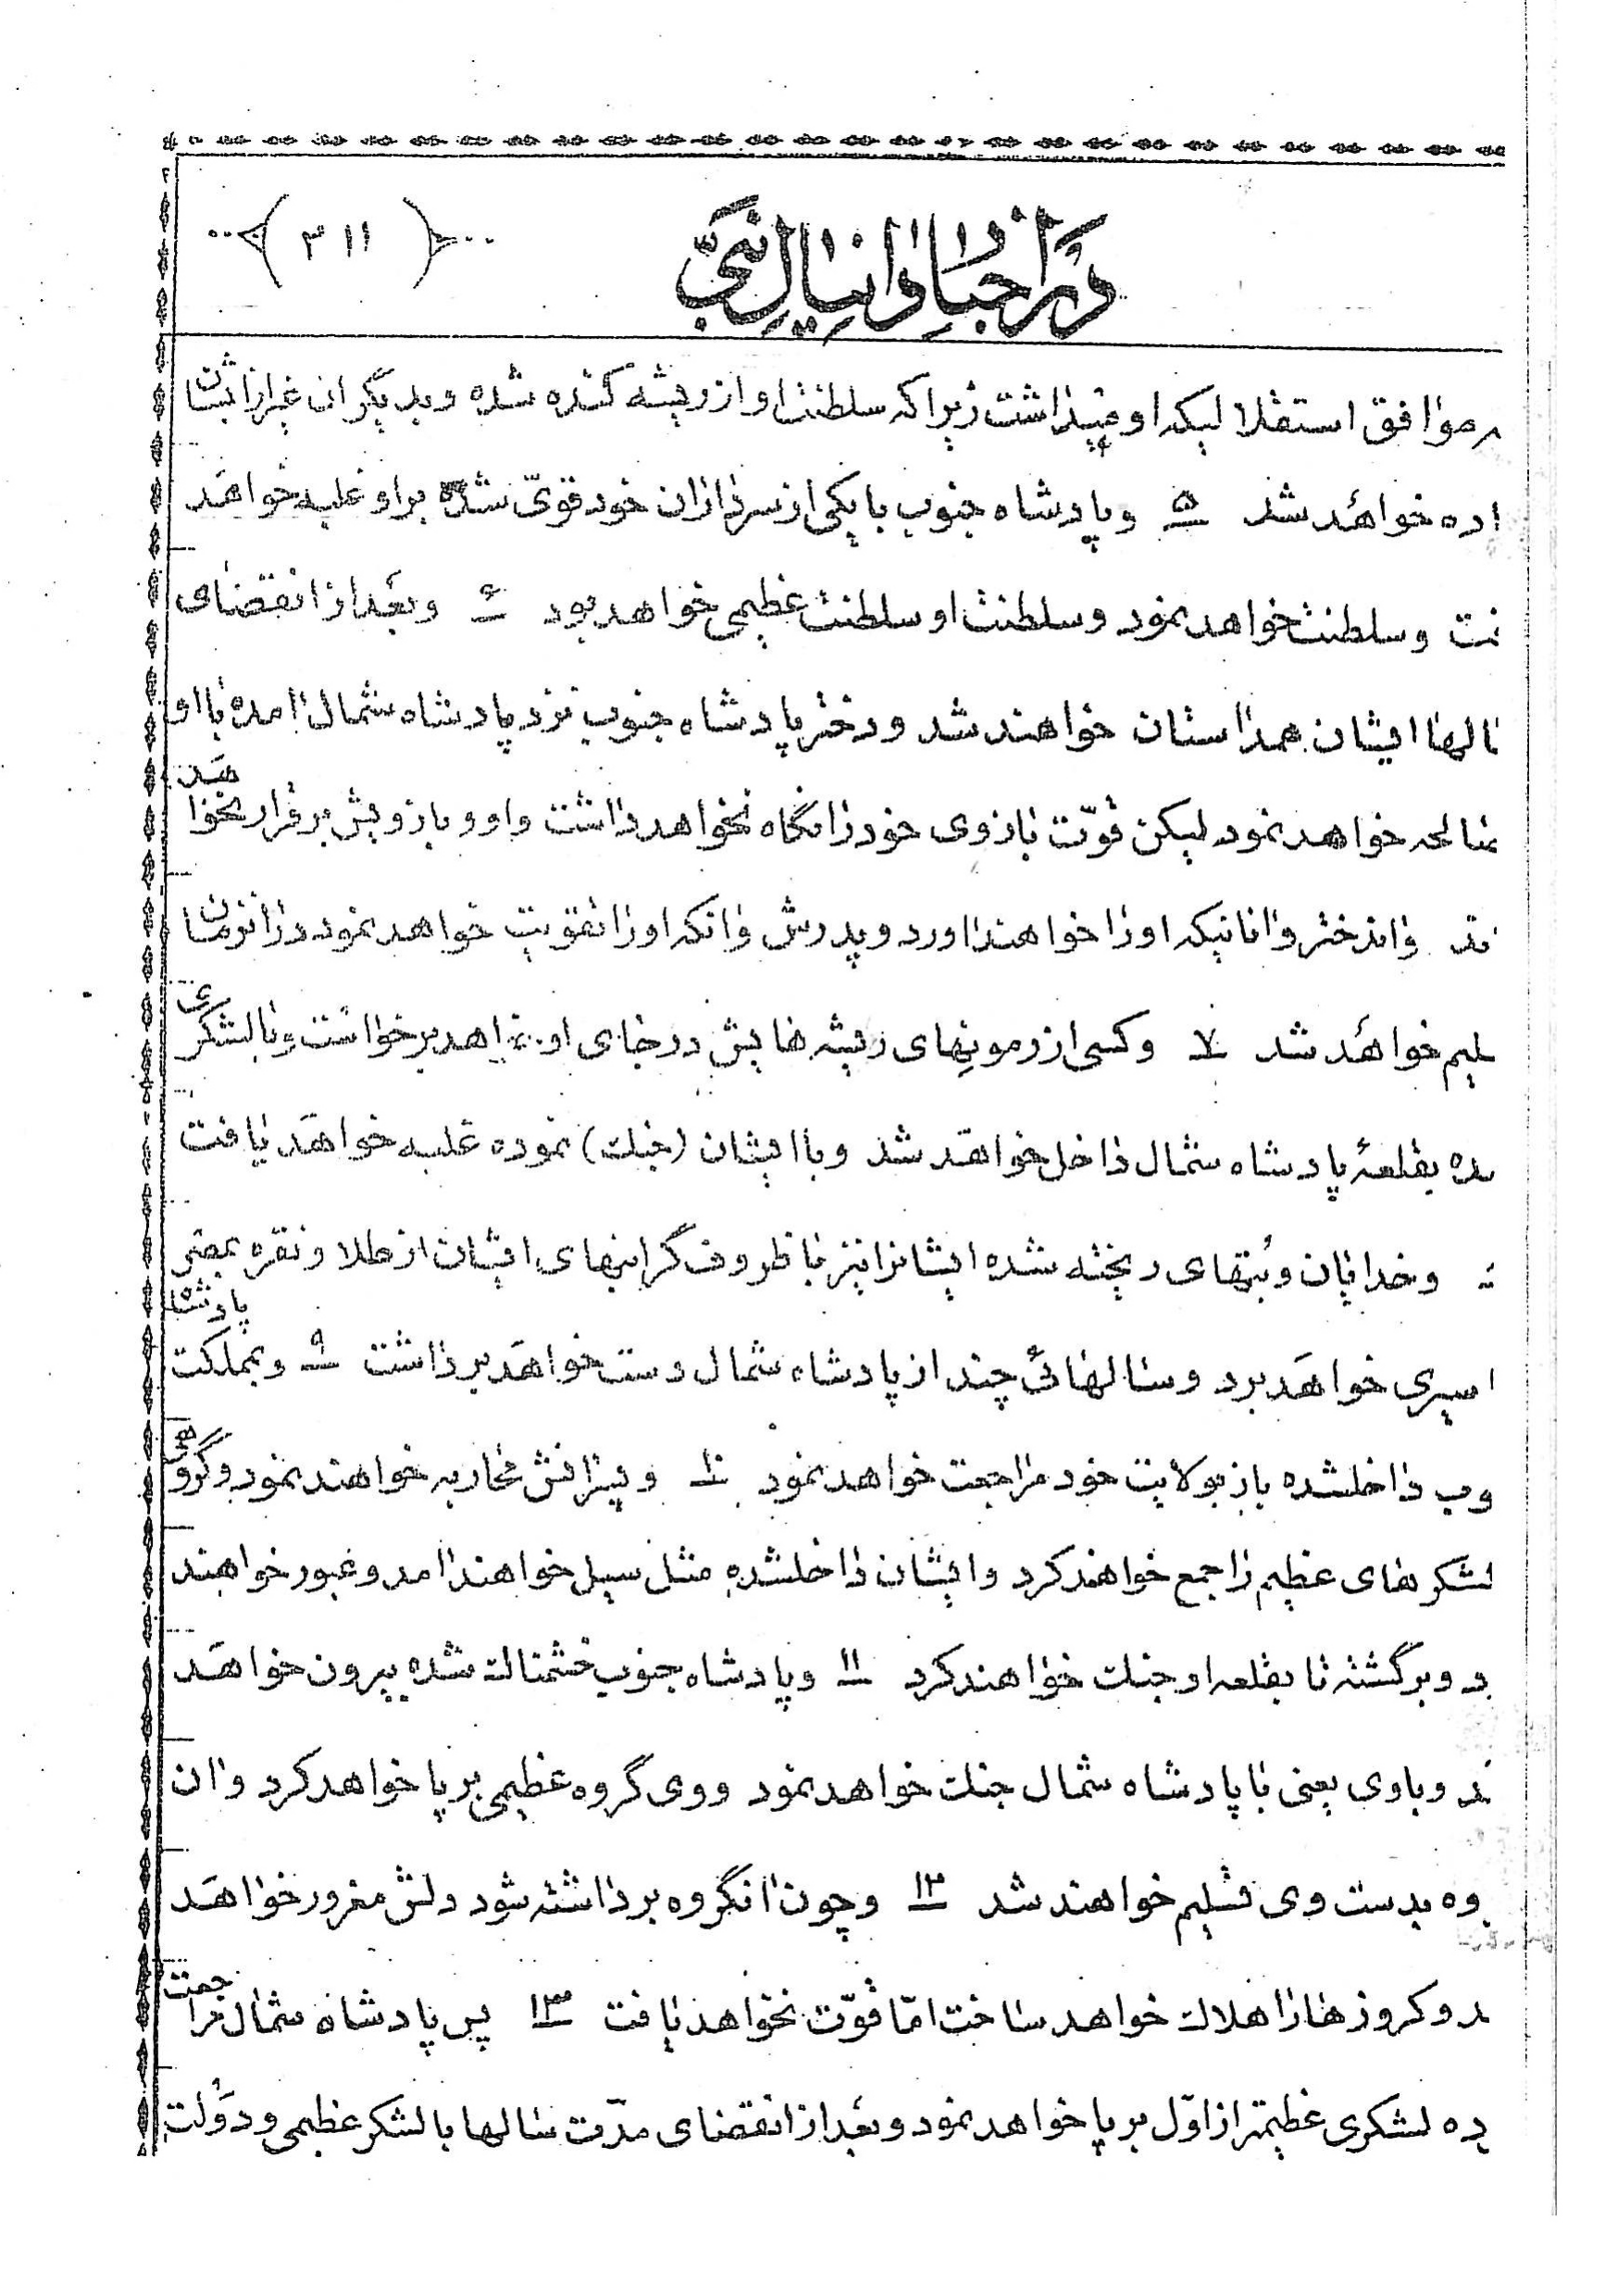 در اخبار دانیال نبی
( ۳۱۱ )
موافق استقلالیکه او میداشت زیرا که سلطنت او از ریشه کنده شده و بدیگران غیر از ایشان
اده خواهد شد ۵ و پادشاه جنوب با یکی از سرداران خود قوی شده بر او غلبه خواهد
و سلطنت خواهد نمود و سلطنت او سلطنت عظیمی خواهد بود ۶ و بعد از انقضای
الها ایشان همداستان خواهند شد و دختر پادشاه جنوب نزد پادشاه شمال آمده با او
خواهد نمود لیکن قوّت بازوی خود را نگاه نخواهد داشت و او و بازویش برقرار نخواهد
واندختر و آنانیکه او را خواهند آورد و پدرش و آنکه او را تقویت خواهد نمود در آنزمان
لیم خواهد شد ۷ و کسی از رمونهای ریشه هایش در جای او خواهد برخواست و با لشگری
ده بقلعهٔ پادشاه شمال داخل خواهد شد و با ایشان (جنک) نموده غلبه خواهد یافت
و خدایان و بُتهای ریخته شده ایشانرا نیز با ظروف گرانبهای ایشان از طلا و نقره بمصر
اسیری خواهد برد و سالهائی چند از پادشاه شمال دست خواهد برداشت ۹ و بمملکت پادشاه
وب داخلشده باز بولایت خود مراجعت خواهد نمود ۱۰ و پسرانش محاربه خواهند نمود و گروهی
لشکرهای عظیم را جمع خواهند کرد و ایشان داخلشده مثل سیل خواهند آمد و عبور خواهند
د و برگشته تا بقلعه او جنک خواهند کرد ۱۱ و پادشاه جنوب خشمناک شده بیرون خواهد
د و با وی یعنی با پادشاه شمال جنک خواهد نمود و وی گروه عظیمی بر پا خواهد کرد و آن
وه بدست وی تسلیم خواهند شد ۱۲ و چون آنگروه برداشته شود دلش مغرور خواهد
د و کرورها را هلاک خواهد ساخت امّا قوّت نخواهد یافت ۱۳ پس پادشاه شمال مراجعت
ده لشکری عظیمتر از اوّل بر پا خواهد نمود و بعد از انقضای مدّت سالها با لشکر عظیمی و دَولت